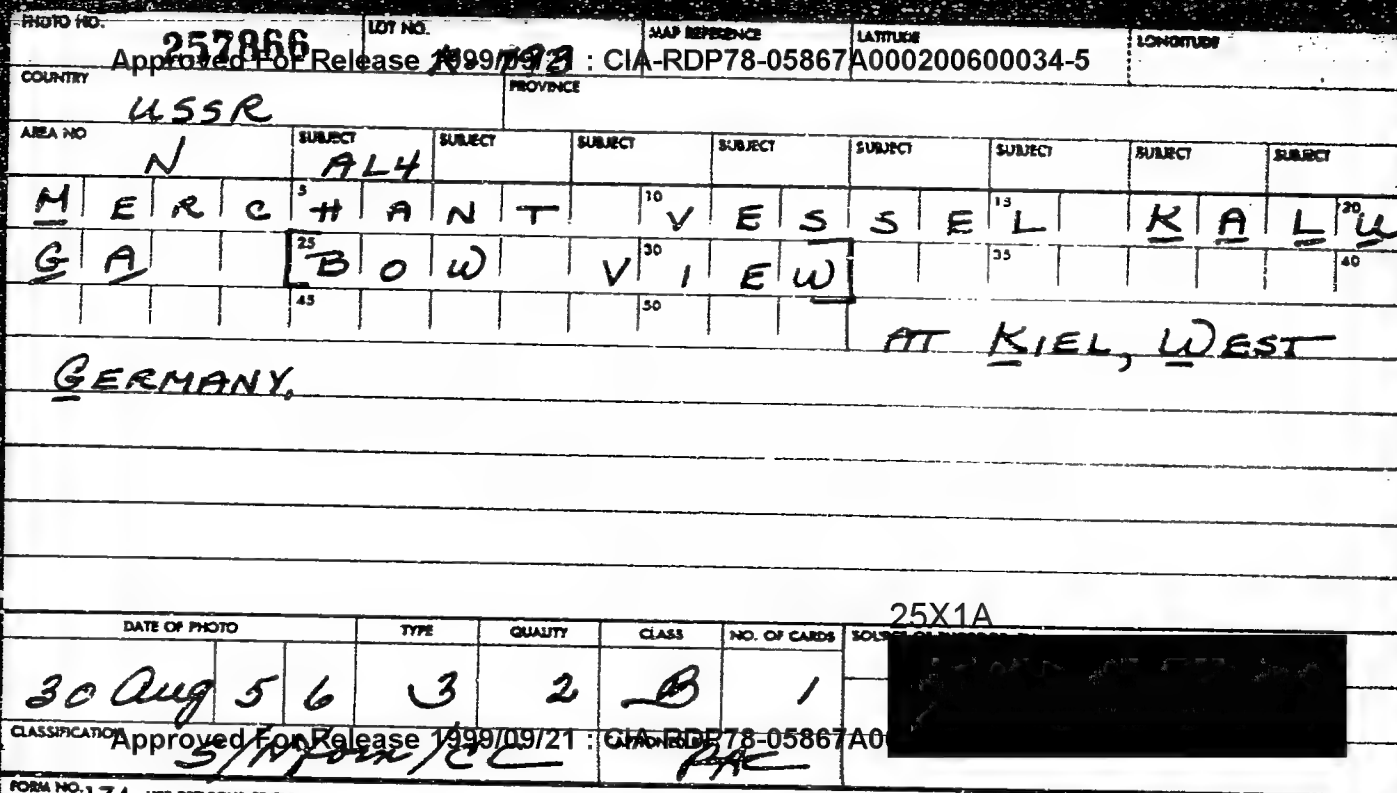 PHOTO NO. 257866 LOT NO. MAP REFERENCE LATITUDE LONGITUDE
Approved For Release 1999/09/21 : CIA-RDP78-05867A000200600034-5
COUNTRY USSR PROVINCE
AREA NO N SUBJECT AL4 SUBJECT SUBJECT SUBJECT SUBJECT SUBJECT SUBJECT SUBJECT
MERC 5 HANT 10 VESSEL 15 KALU 20
GA 25 BOW VIEW 30 35 40
45 50
AT KIEL, WEST
GERMANY.
25X1A
DATE OF PHOTO TYPE QUALITY CLASS NO. OF CARDS
30 Aug 56 3 2 B 1
CLASSIFICATION S/Noforn/CC CAPTIONED BY PAC
Approved For Release 1999/09/21 : CIA-RDP78-05867A00
FORM NO. 174